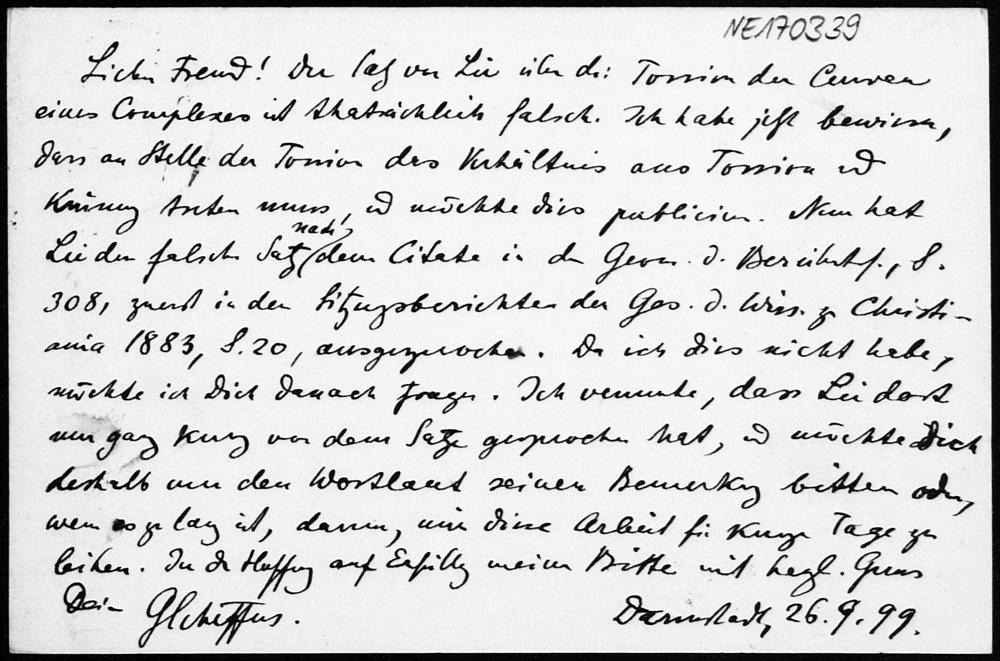 NE170339
Lieber Freund! Der Satz von Lie über die Torsion der Curven
eines Complexes ist thatsächlich falsch. Ich habe jetzt bewiesen,
dass an Stelle der Torsion das Verhältnis aus Torsion und
Krümmung treten muss, und möchte dies publicieren. Nun hat
Lie den falschen Satz nach dem Citate in der Geom. d. Berührtrf., S.
308, zuerst in den Sitzungsberichten der Ges. d. Wiss. zu Christi-
ania 1883, S. 20, ausgesprochen. Da ich dies nicht habe,
möchte ich Dich danach fragen. Ich vermute, dass Lie dort
nur ganz kurz von dem Satze gesprochen hat, und möchte Dich
deshalb um den Wortlaut seiner Bemerkung bitten oder,
wenn es zu lang ist, darum, mir diese Arbeit für kurze Tage zu
leihen. In der Hoffnung auf Erfüllung meiner Bitte mit herzl. Gruss
Dein GScheffers.
Darmstadt, 26.9.99.